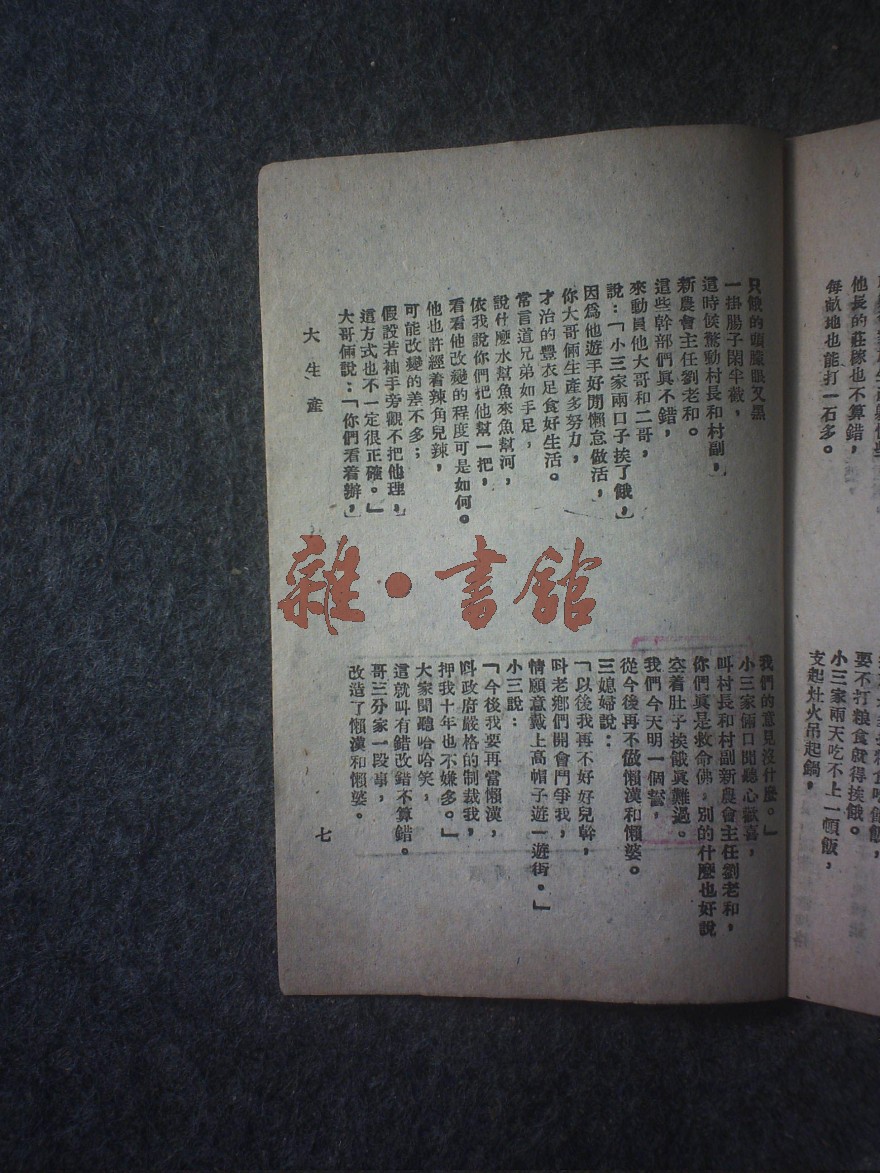 他長的莊稼也不算錯，
每畝地也能打一石多。
要不打粮食就得挨餓。
小三家兩天吃不上一頓飯，
支起灶火吊起鍋，
只餓的頭朦眼又黑
一掛腸子閑半截，
這時候驚動村長和村副，
新農會主任劉老和。
這些幹部們眞不錯，
來動員他大哥和二哥，
說：「小三家兩口子挨了餓，
因爲他遊手好閒懶怠做活，
你大哥倆生產多努力，
才治的豐衣足食好生活。
常言道兄弟如手足，
說什麼水幫魚來魚幫河，
依我說你們把他幫一把，
看看他改變的程度可是如何。
他也許經着辣角兒辣，
可能改變的差不多；
假設若袖手旁觀不把他理，
這方式也不一定很正確。」
大哥倆說：「你們看着辦，
我們的意見沒什麼。」
小三家倆口聞聽心歡喜，
叫村長和村副新農會主任劉老和，
你們眞是救命佛，別的什麼也好說
空着肚子挨餓眞難過。
我們今天明一個誓，
從今後再不做懶漢和懶婆。
三媳婦說：
「以後我再不好好兒幹，
叫老鄉們開會鬥爭我，
情願意戴上高帽子遊一遊街。」
小三說：
「今後我要再當懶漢，
叫政府嚴格的制裁我，
押我十年也不嫌多。」
大家聞聽哈哈笑，
這就叫有錯改錯不算錯。
哥三分家一段事，
改造了懶漢和懶婆。
大生產
七
雜·書館